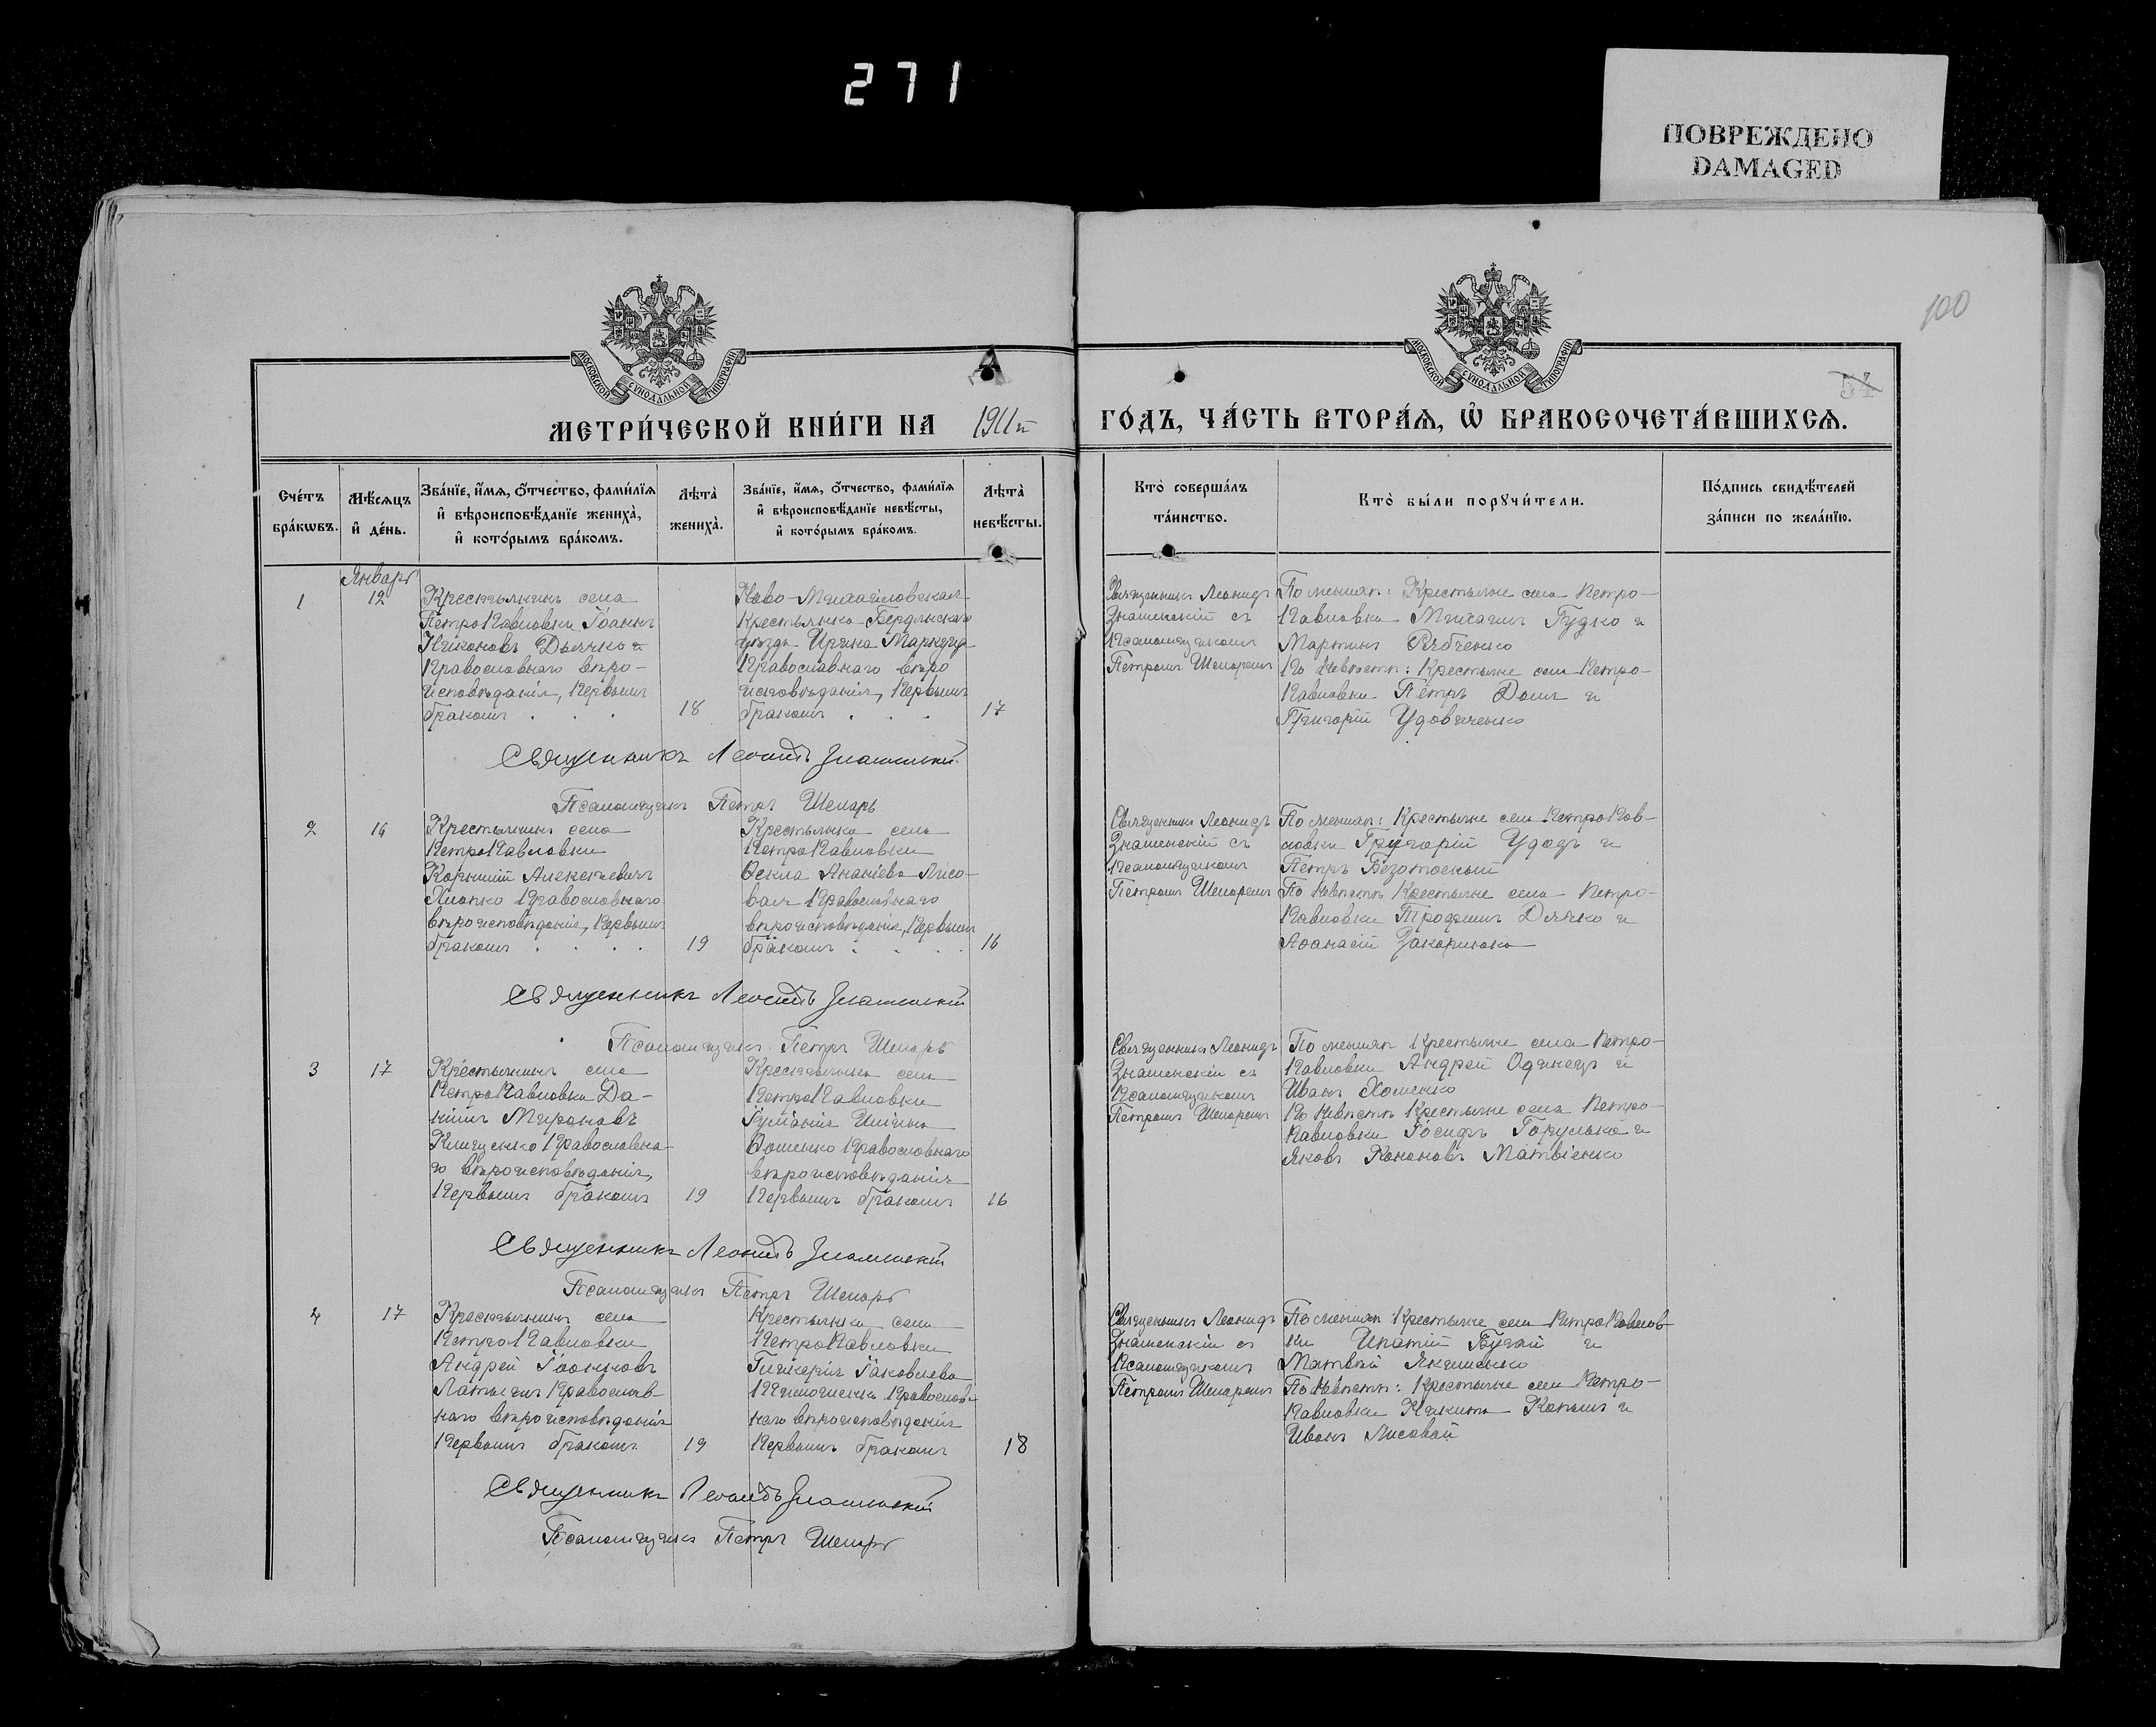 271
ПОВРЕЖДЕНО
DAMAGED
100
54
МОСКОВСКОЙ СѴНОДАЛЬНОЙ ТИПОГРАФІИ
МОСКОВСКОЙ СѴНОДАЛЬНОЙ ТИПОГРАФІИ
МЕТРИ́ЧЕСКОЙ КНИ́ГИ НА 1911й ГО́ДЪ, ЧА́СТЬ ВТОРА́Ѧ, Ѡ҆ БРАКОСОЧЕТА́ВШИХСѦ.
Сче́тъ бра́кѡвъ.
Мѣ́сѧцъ и҆ де́нь.
Зва́нїе, и҆́мѧ, ѻ҆́тчество, фами́лїѧ и҆ вѣроисповѣ́данїе жениха̀, и҆ кото́рымъ бра́комъ.
Лѣта̀ жениха̀.
Зва́нїе, и҆́мѧ, ѻ҆́тчество, фами́лїѧ и҆ вѣроисповѣ́данїе невѣ́сты, и҆ кото́рымъ бра́комъ.
Лѣта̀ невѣ́сты.
Кто̀ соверша́лъ та́инство.
Кто̀ бы́ли порꙋчи́тели.
По́дпись свидѣ́телей за́писи по жела́нїю.
Январь
1
12
Крестьянинъ села
ПетроПавловки Іоаннъ
Никоновъ Дьячко
Православнаго вѣро-
исповѣданія, первымъ
бракомъ . . .
18
Ново-Михайловская
крестьянка Бердянскаго
уѣзда Ирина
Православнаго вѣро
исповѣданія, первымъ
бракомъ . . .
17
Священникъ Леонидъ
Знаменскій съ
Псаломщикомъ
Петромъ Шепаремъ
По женихѣ: Крестьяне села Петро-
Павловки Михаилъ Гудко и
Мартинъ Рябченко
По невѣстѣ: Крестьяне села Петро-
Павловки Петръ и
Григорій Удовиченко
Священникъ Леонидъ Знаменскій
Псаломщикъ Петръ Шепарь
2
16
Крестьянинъ села
ПетроПавловки
Корнилій Алексѣевъ
Хлопко Православнаго
вѣроисповѣданія, первымъ
бракомъ . . . .
19
Крестьянка села
ПетроПавловки
Ѳекла Ананіева Лисо-
вая Православнаго
вѣроисповѣданія, первымъ
бракомъ . . . .
16
Священникъ Леонидъ
Знаменскій съ
Псаломщикомъ
Петромъ Шепаремъ
По женихѣ: Крестьяне села ПетроПав-
ловки Григорій Удодъ и
Петръ
По невѣстѣ Крестьяне села Петро-
Павловки Трофимъ Дьячко и
Аѳанасій
Священникъ Леонидъ Знаменскій
Псаломщикъ Петръ Шепарь
3
17
Крестьянинъ села
ПетроПавловки Да-
ніилъ Мироновъ
Клищенко Православна-
го вѣроисповѣданія,
Первымъ бракомъ
19
Крестьянка села
ПетроПавловки
Іуліанія Ильина
Ѳоменко Православнаго
вѣроисповѣданія
Первымъ бракомъ
16
Священникъ Леонидъ
Знаменскій съ
Псаломщикомъ
Петромъ Шепаремъ
По женихѣ Крестьяне села Петро-
Павловки Андрей Одинецъ и
Иванъ Хоменко
По невѣстѣ Крестьяне села Петро-
Павловки Іосифъ Горулько и
Яковъ Кононовъ Матвіенко
Священникъ Леонидъ Знаменскій
Псаломщикъ Петръ Шепарь
4
17
Крестьянинъ села
ПетроПавловки
Андрей Іоанновъ
Православ-
наго вѣроисповѣданія
Первымъ бракомъ
19
Крестьянка села
ПетроПавловки
Гликерія Іаковлева
Православ-
наго вѣроисповѣданія
Первымъ бракомъ
18
Священникъ Леонидъ
Знаменскій съ
Псаломщикомъ
Петромъ Шепаремъ
По женихѣ Крестьяне села ПетроПавлов-
ки Ипатій Бугай и
Матвѣй Якименко
По невѣстѣ: Крестьяне села Петро-
Павловки Никита и
Иванъ Лисовой
Священникъ Леонидъ Знаменскій
Псаломщикъ Петръ Шепарь